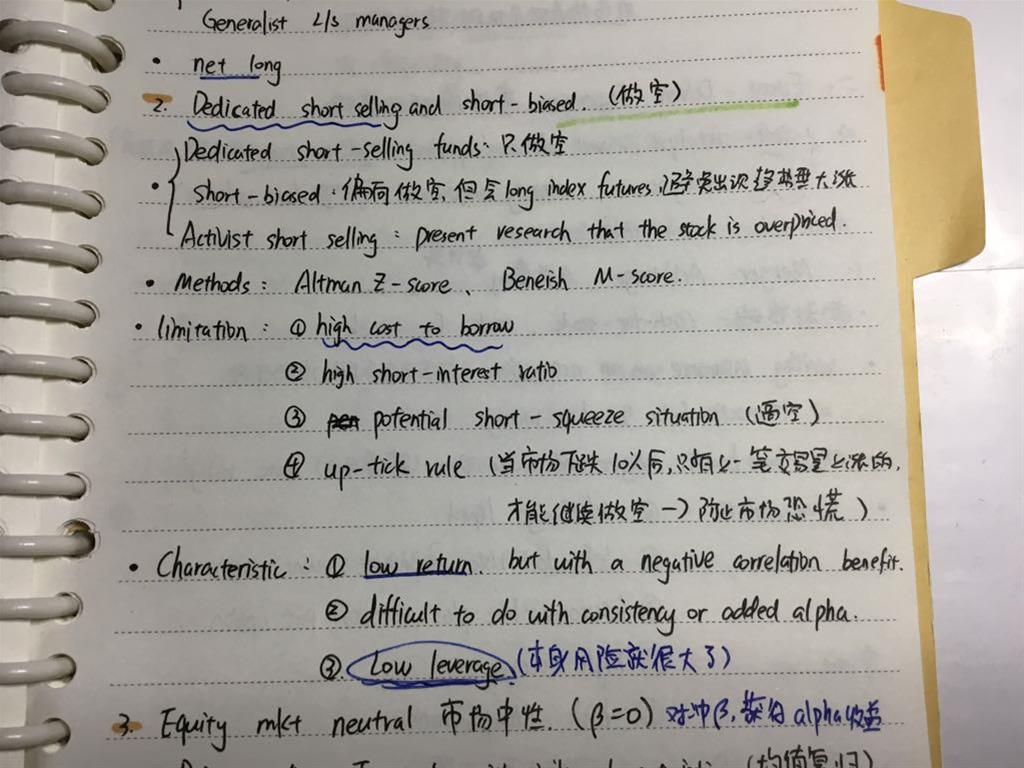 Generalist L/S managers
• net long
2. Dedicated short selling and short-biased. (做空)
Dedicated short-selling funds: 只做空
• short-biased: 偏向做空, 但会 long index futures, 避免出现趋势型大涨
Activist short selling: present research that the stock is overpriced.
• Methods: Altman Z-score、 Beneish M-score.
• limitation: ① high cost to borrow
② high short-interest ratio
③ potential short-squeeze situation (逼空)
④ up-tick rule (当市场下跌10以后, 只有上一笔交易是上涨的,
才能继续做空 → 防止市场恐慌)
• Characteristic: ① low return. but with a negative correlation benefit.
② difficult to do with consistency or added alpha.
③ Low leverage (本身风险就很大了)
3. Equity mkt neutral 市场中性. (β=0) 对冲β, 获得alpha收益
(均值复归)